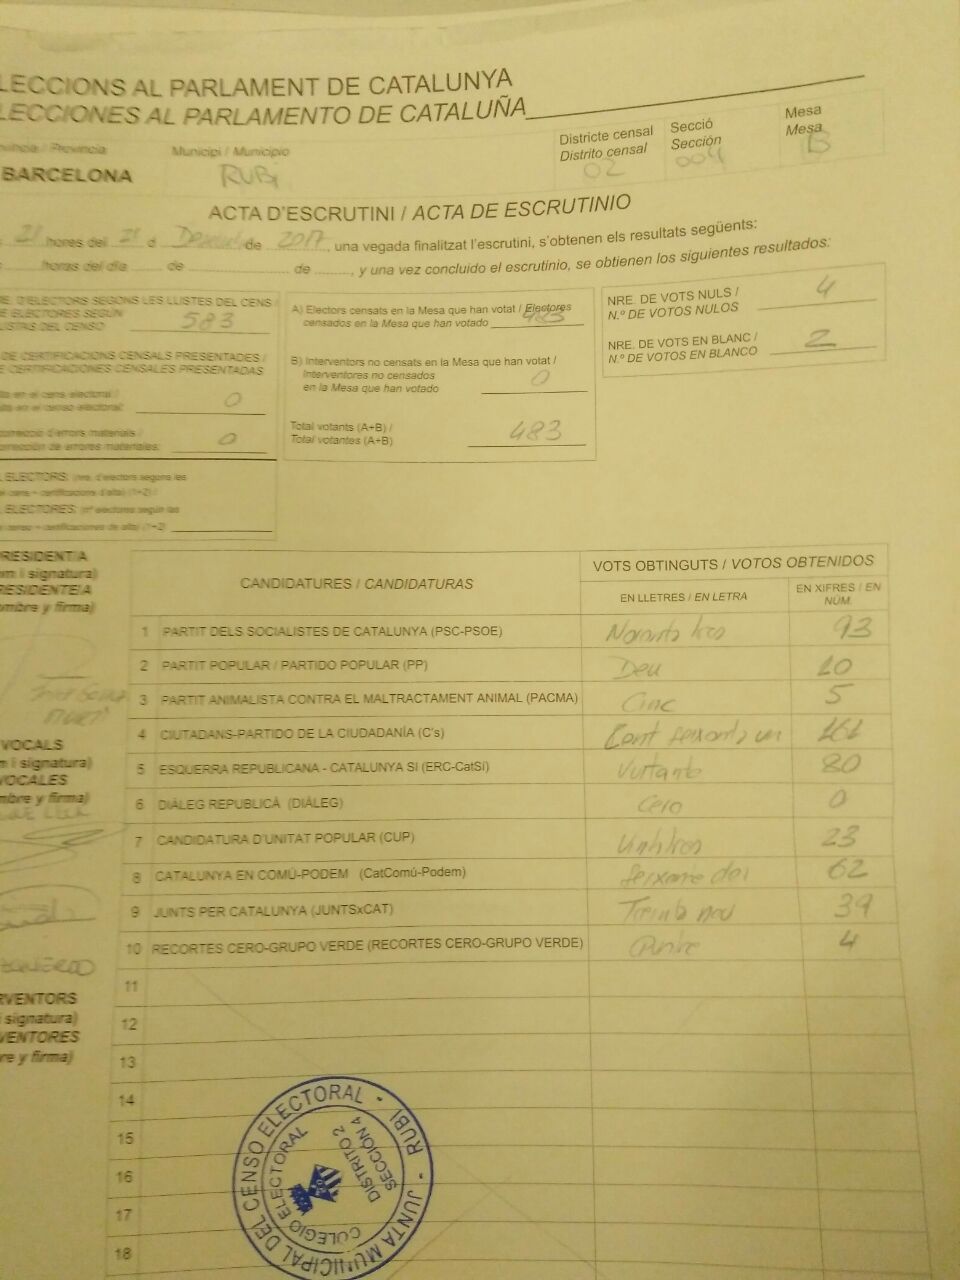 LECCIONS AL PARLAMENT DE CATALUNYA
LECCIONES AL PARLAMENTO DE CATALUÑA
Província / Provincia
Municipi / Municipio
Districte censal
Distrito censal
Secció
Sección
Mesa
Mesa
BARCELONA
RUBI
02
004
B
ACTA D'ESCRUTINI / ACTA DE ESCRUTINIO
21 hores del 21 d de 2017, una vegada finalitzat l'escrutini, s'obtenen els resultats següents:
horas del día de de , y una vez concluido el escrutinio, se obtienen los siguientes resultados:
RE. D'ELECTORS SEGONS LES LLISTES DEL CENS /
E ELECTORES SEGÚN
LISTAS DEL CENSO
583
DE CERTIFICACIONS CENSALS PRESENTADES /
E CERTIFICACIONES CENSALES PRESENTADAS
lta en el cens electoral /
lta en el censo electoral:
0
correcció d'errors materials /
corrección de errores materiales:
0
ELECTORS: (nre. d'electors segons les
el cens + certificacions d'alta) (1+2) /
ELECTORES: (nº electores según las
censo + certificaciones de alta) (1+2)
A) Electors censats en la Mesa que han votat / Electores
censados en la Mesa que han votado 483
B) Interventors no censats en la Mesa que han votat /
Interventores no censados
en la Mesa que han votado
0
Total votants (A+B) /
Total votantes (A+B)
483
NRE. DE VOTS NULS /
N.º DE VOTOS NULOS
4
NRE. DE VOTS EN BLANC /
N.º DE VOTOS EN BLANCO
2
RESIDENT/A
m i signatura)
RESIDENTE/A
ombre y firma)
VOCALS
m i signatura)
VOCALES
mbre y firma)
RVENTORS
i signatura)
VENTORES
re y firma)
CANDIDATURES / CANDIDATURAS
VOTS OBTINGUTS / VOTOS OBTENIDOS
EN LLETRES / EN LETRA
EN XIFRES / EN
NÚM.
1 PARTIT DELS SOCIALISTES DE CATALUNYA (PSC-PSOE) Noranta tres 93
2 PARTIT POPULAR / PARTIDO POPULAR (PP) Deu 10
3 PARTIT ANIMALISTA CONTRA EL MALTRACTAMENT ANIMAL (PACMA) Cinc 5
4 CIUTADANS-PARTIDO DE LA CIUDADANÍA (C's) Cent seixanta un 161
5 ESQUERRA REPUBLICANA - CATALUNYA SÍ (ERC-CatSí) Vuitanta 80
6 DIÀLEG REPUBLICÀ (DIÀLEG) Cero 0
7 CANDIDATURA D'UNITAT POPULAR (CUP) 23
8 CATALUNYA EN COMÚ-PODEM (CatComú-Podem) 62
9 JUNTS PER CATALUNYA (JUNTSxCAT) 39
10 RECORTES CERO-GRUPO VERDE (RECORTES CERO-GRUPO VERDE) 4
11
12
13
14
15
16
17
18
JUNTA MUNICIPAL DEL CENSO ELECTORAL - RUBI -
COLEGIO ELECTORAL
DISTRITO 2
SECCIÓN 4